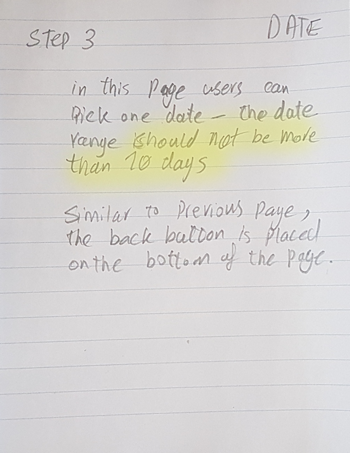 Step 3
DATE
in this page users can
Pick one date – the date
range should not be more
than 10 days
Similar to Previous Page,
the back button is placed
on the bottom of the page.